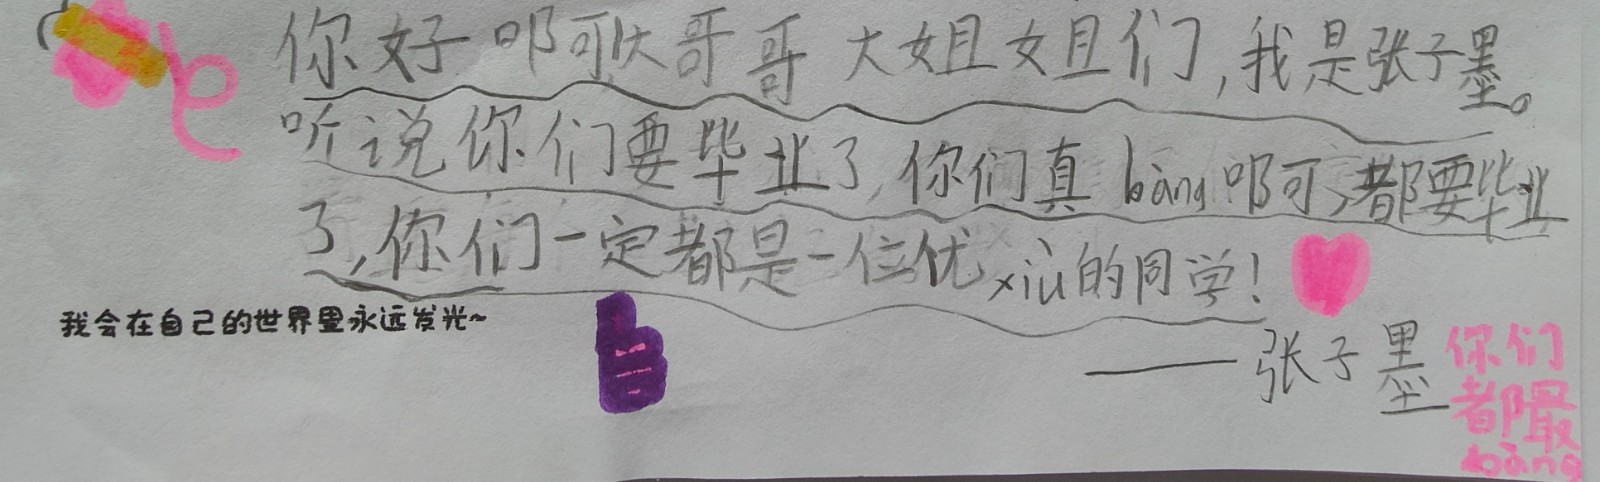 你好叩可大哥哥大姐姐们,我是张子墨。
听说你们要毕业了,你们真bàng叩可,都要毕业
了,你们一定都是一位优xiù的同学!
我会在自己的世界里永远发光~
——张子墨
你们
都最
bàng